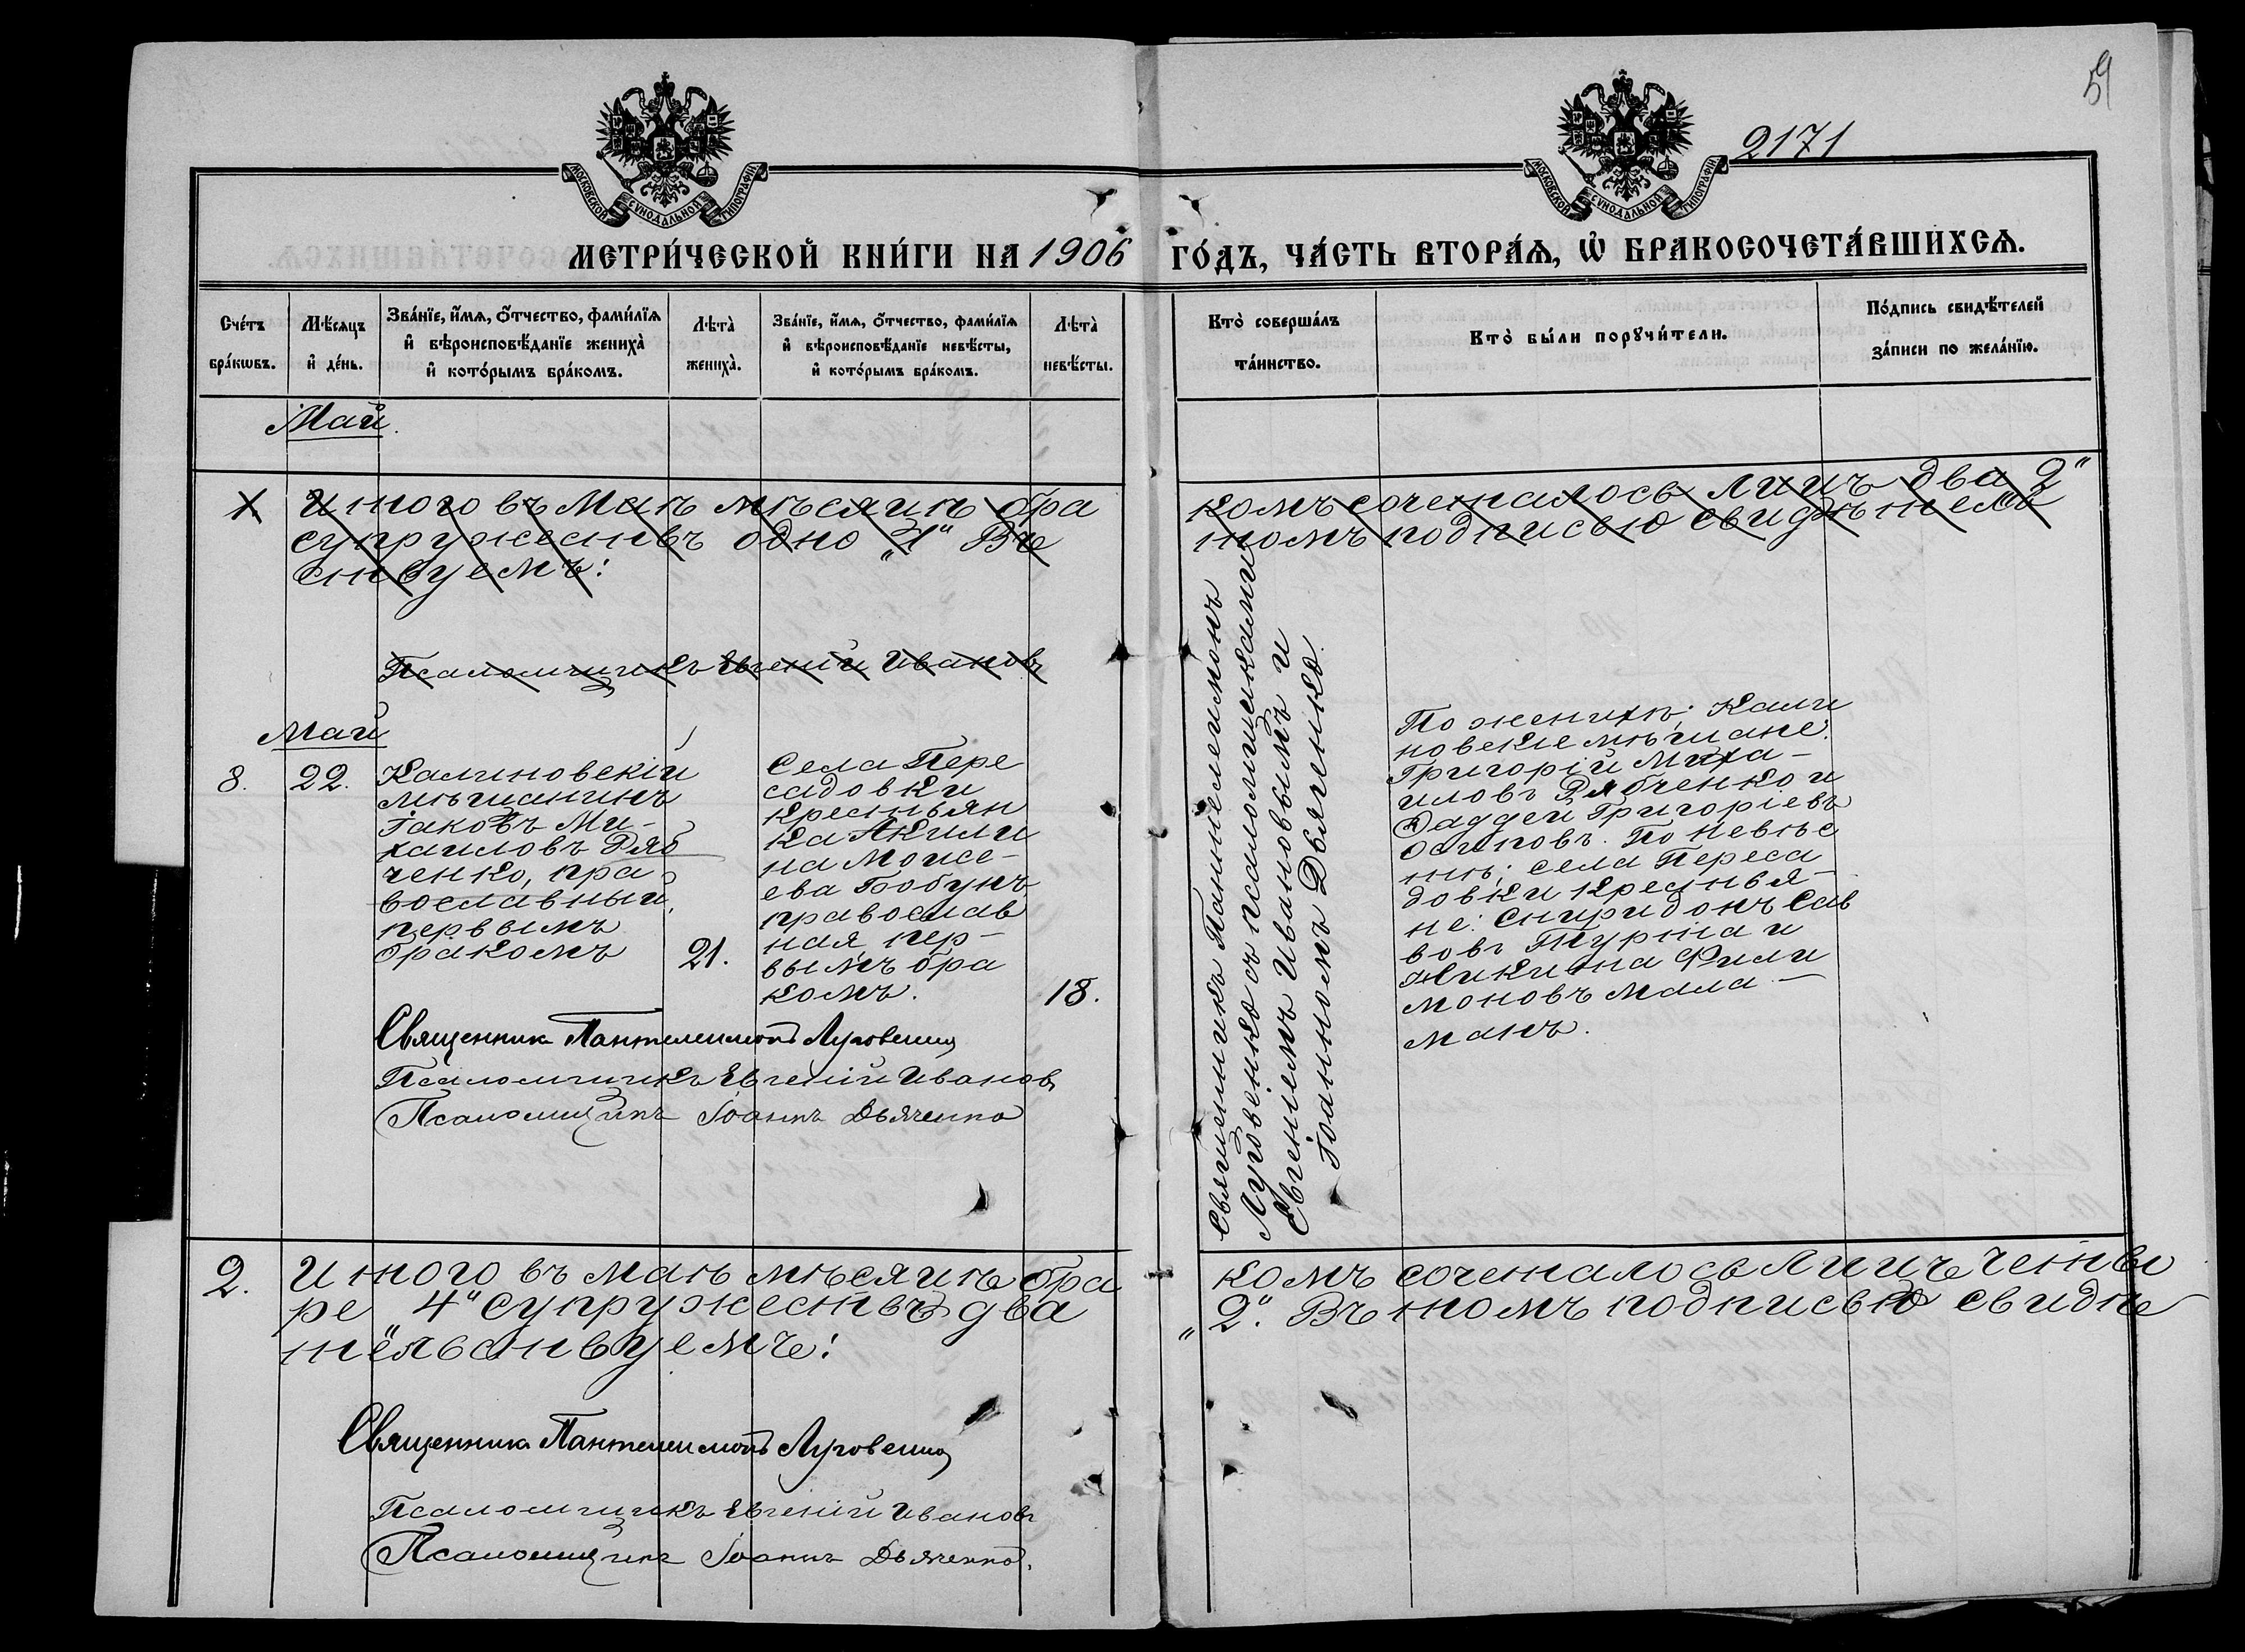 59
2171
МОСКОВСКОЙ СѴНОДАЛЬНОЙ ТИПОГРАФІИ
МОСКОВСКОЙ СѴНОДАЛЬНОЙ ТИПОГРАФІИ
МЕТРИ́ЧЕСКОЙ КНИ́ГИ НА 1906 ГО́ДЪ, ЧА́СТЬ ВТОРА́Ѧ, Ѽ БРАКОСОЧЕТА́ВШИХСѦ.
Сче́тъ бра́кѡвъ.
Мѣ́сѧцъ и҆ де́нь.
Зва́нїе, и҆́мѧ, ѻ҆́тчество, фами́лїѧ
и҆ вѣроисповѣ́данїе жениха̀
и҆ кото́рымъ бра́комъ.
Лѣта̀ жениха̀.
Зва́нїе, и҆́мѧ, ѻ҆́тчество, фами́лїѧ
и҆ вѣроисповѣ́данїе невѣ́сты,
и҆ кото́рымъ бра́комъ.
Лѣта̀ невѣ́сты.
Кто̀ соверша́лъ
та́инство.
Кто̀ бы́ли порꙋчи́тели.
По́дпись свидѣ́телей
за́писи по жела́нїю.
Май.
Итого въ Маѣ мѣсяцѣ бра
комъ сочеталось лицъ два 2"
супружествъ одно „1" Въ
томъ подписью свидѣтель
ствуемъ:
Псаломщикъ Евгеній Ивановъ
Май
8.
22.
Калиновскій
мѣщанинъ
Іаковъ Ми-
хаиловъ Ряб
ченко, пра
вославный,
первымъ
бракомъ
21.
Села Пере
садовки
крестьян
ка Акили
на Моисе-
ева Бобунъ
православ
ная, пер-
вымъ бра
комъ.
18.
Священникъ Пантелеимонъ
Луговенко съ псаломщиками
Евгеніемъ Ивановымъ и
Іоанномъ Дьяченко.
По женихѣ; Кали
новскіе мѣщане:
Григорій Миха-
иловъ Рябченко и
Фаддей Григоріевъ
Осиповъ. По невѣс
тѣ; села Переса
довки крестья-
не: Спиридонъ Сав
вовъ Турта и
Никита Фили
моновъ Мала-
манъ.
Священникъ Пантелеимонъ Луговенко
Псаломщикъ Евгеній Ивановъ
Псаломщикъ Іоаннъ Дьяченко
2.
Итого въ маѣ мѣсяцѣ бра
комъ сочеталось лицъ четы
ре „4" супружествъ два
„2". Въ томъ подписью свидѣ
тельствуемъ:
Священникъ Пантелеимонъ Луговенко
Псаломщикъ Евгеній Ивановъ
Псаломщикъ Іоаннъ Дьяченко.